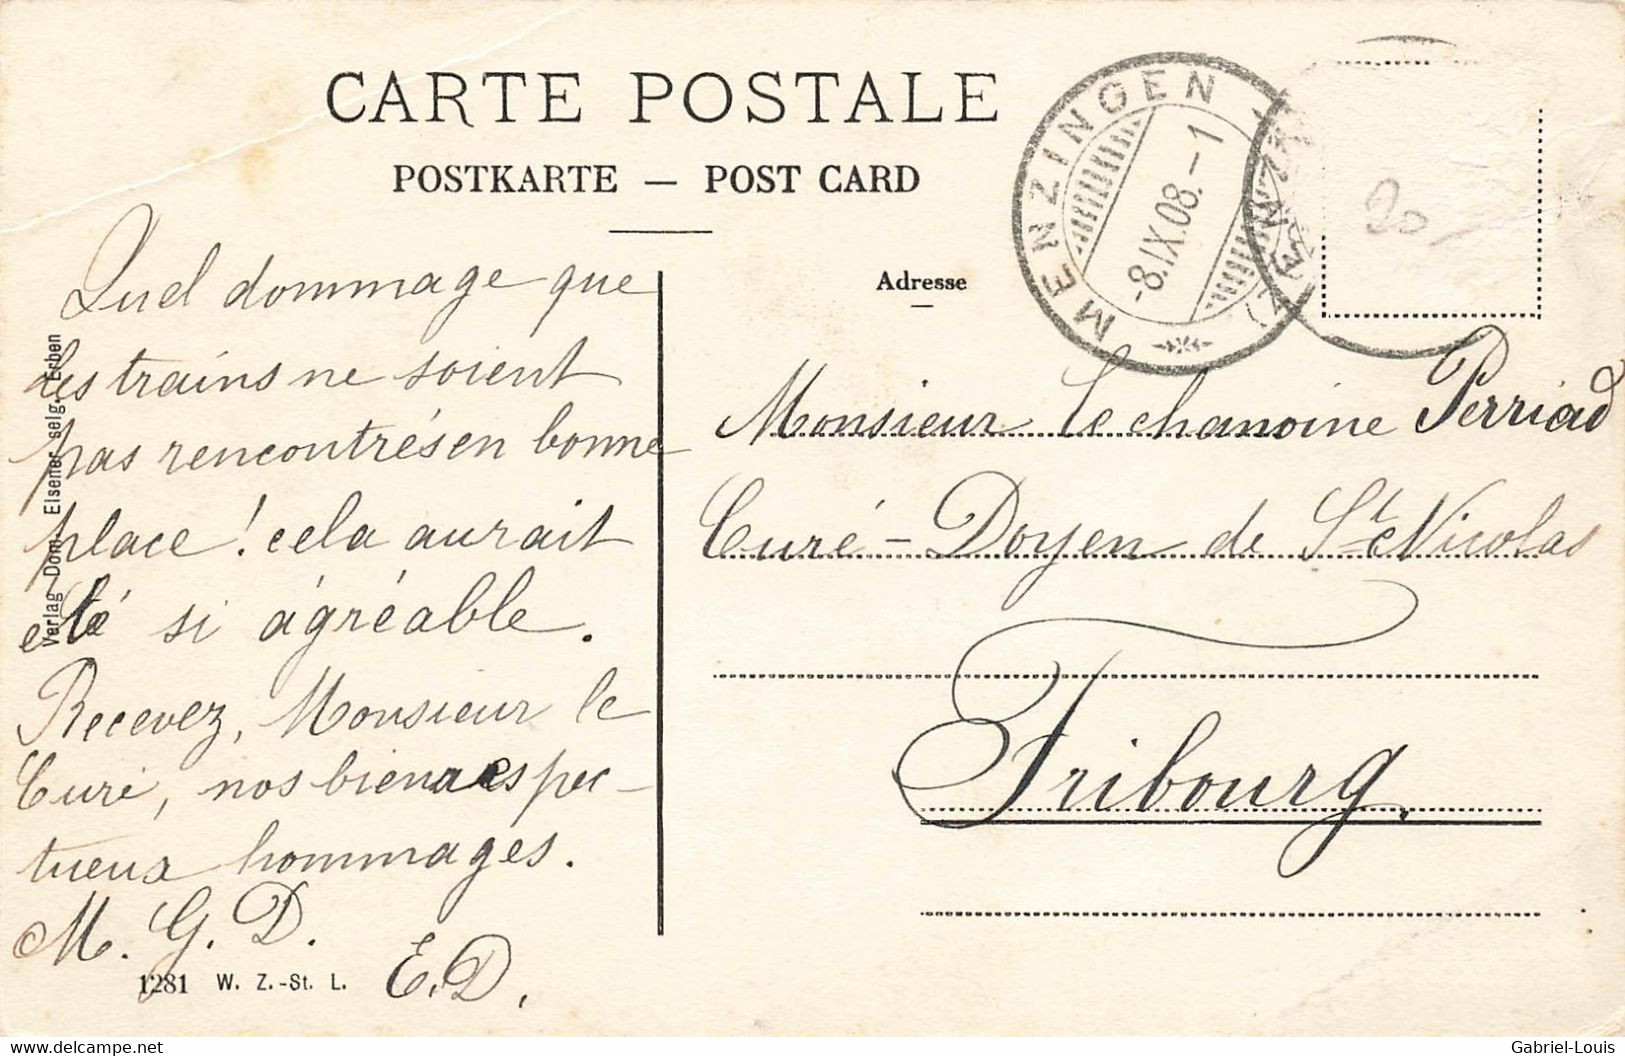 CARTE POSTALE
POSTKARTE — POST CARD
Adresse
MENZINGEN
-8.IX.08.-1
20
Quel dommage que
les trains ne soient
pas rencontrés en bonne
place! cela aurait
été si agréable.
Recevez, Monsieur le
Curé, nos bien respec-
tueux hommages.
M. G. D.
E. D.
Monsieur le chanoine Perriard
Curé-Doyen de St Nicolas
Fribourg.
Verlag Dom. Elsener selg. Erben
1281 W. Z.-St. L.
www.delcampe.net
Gabriel-Louis